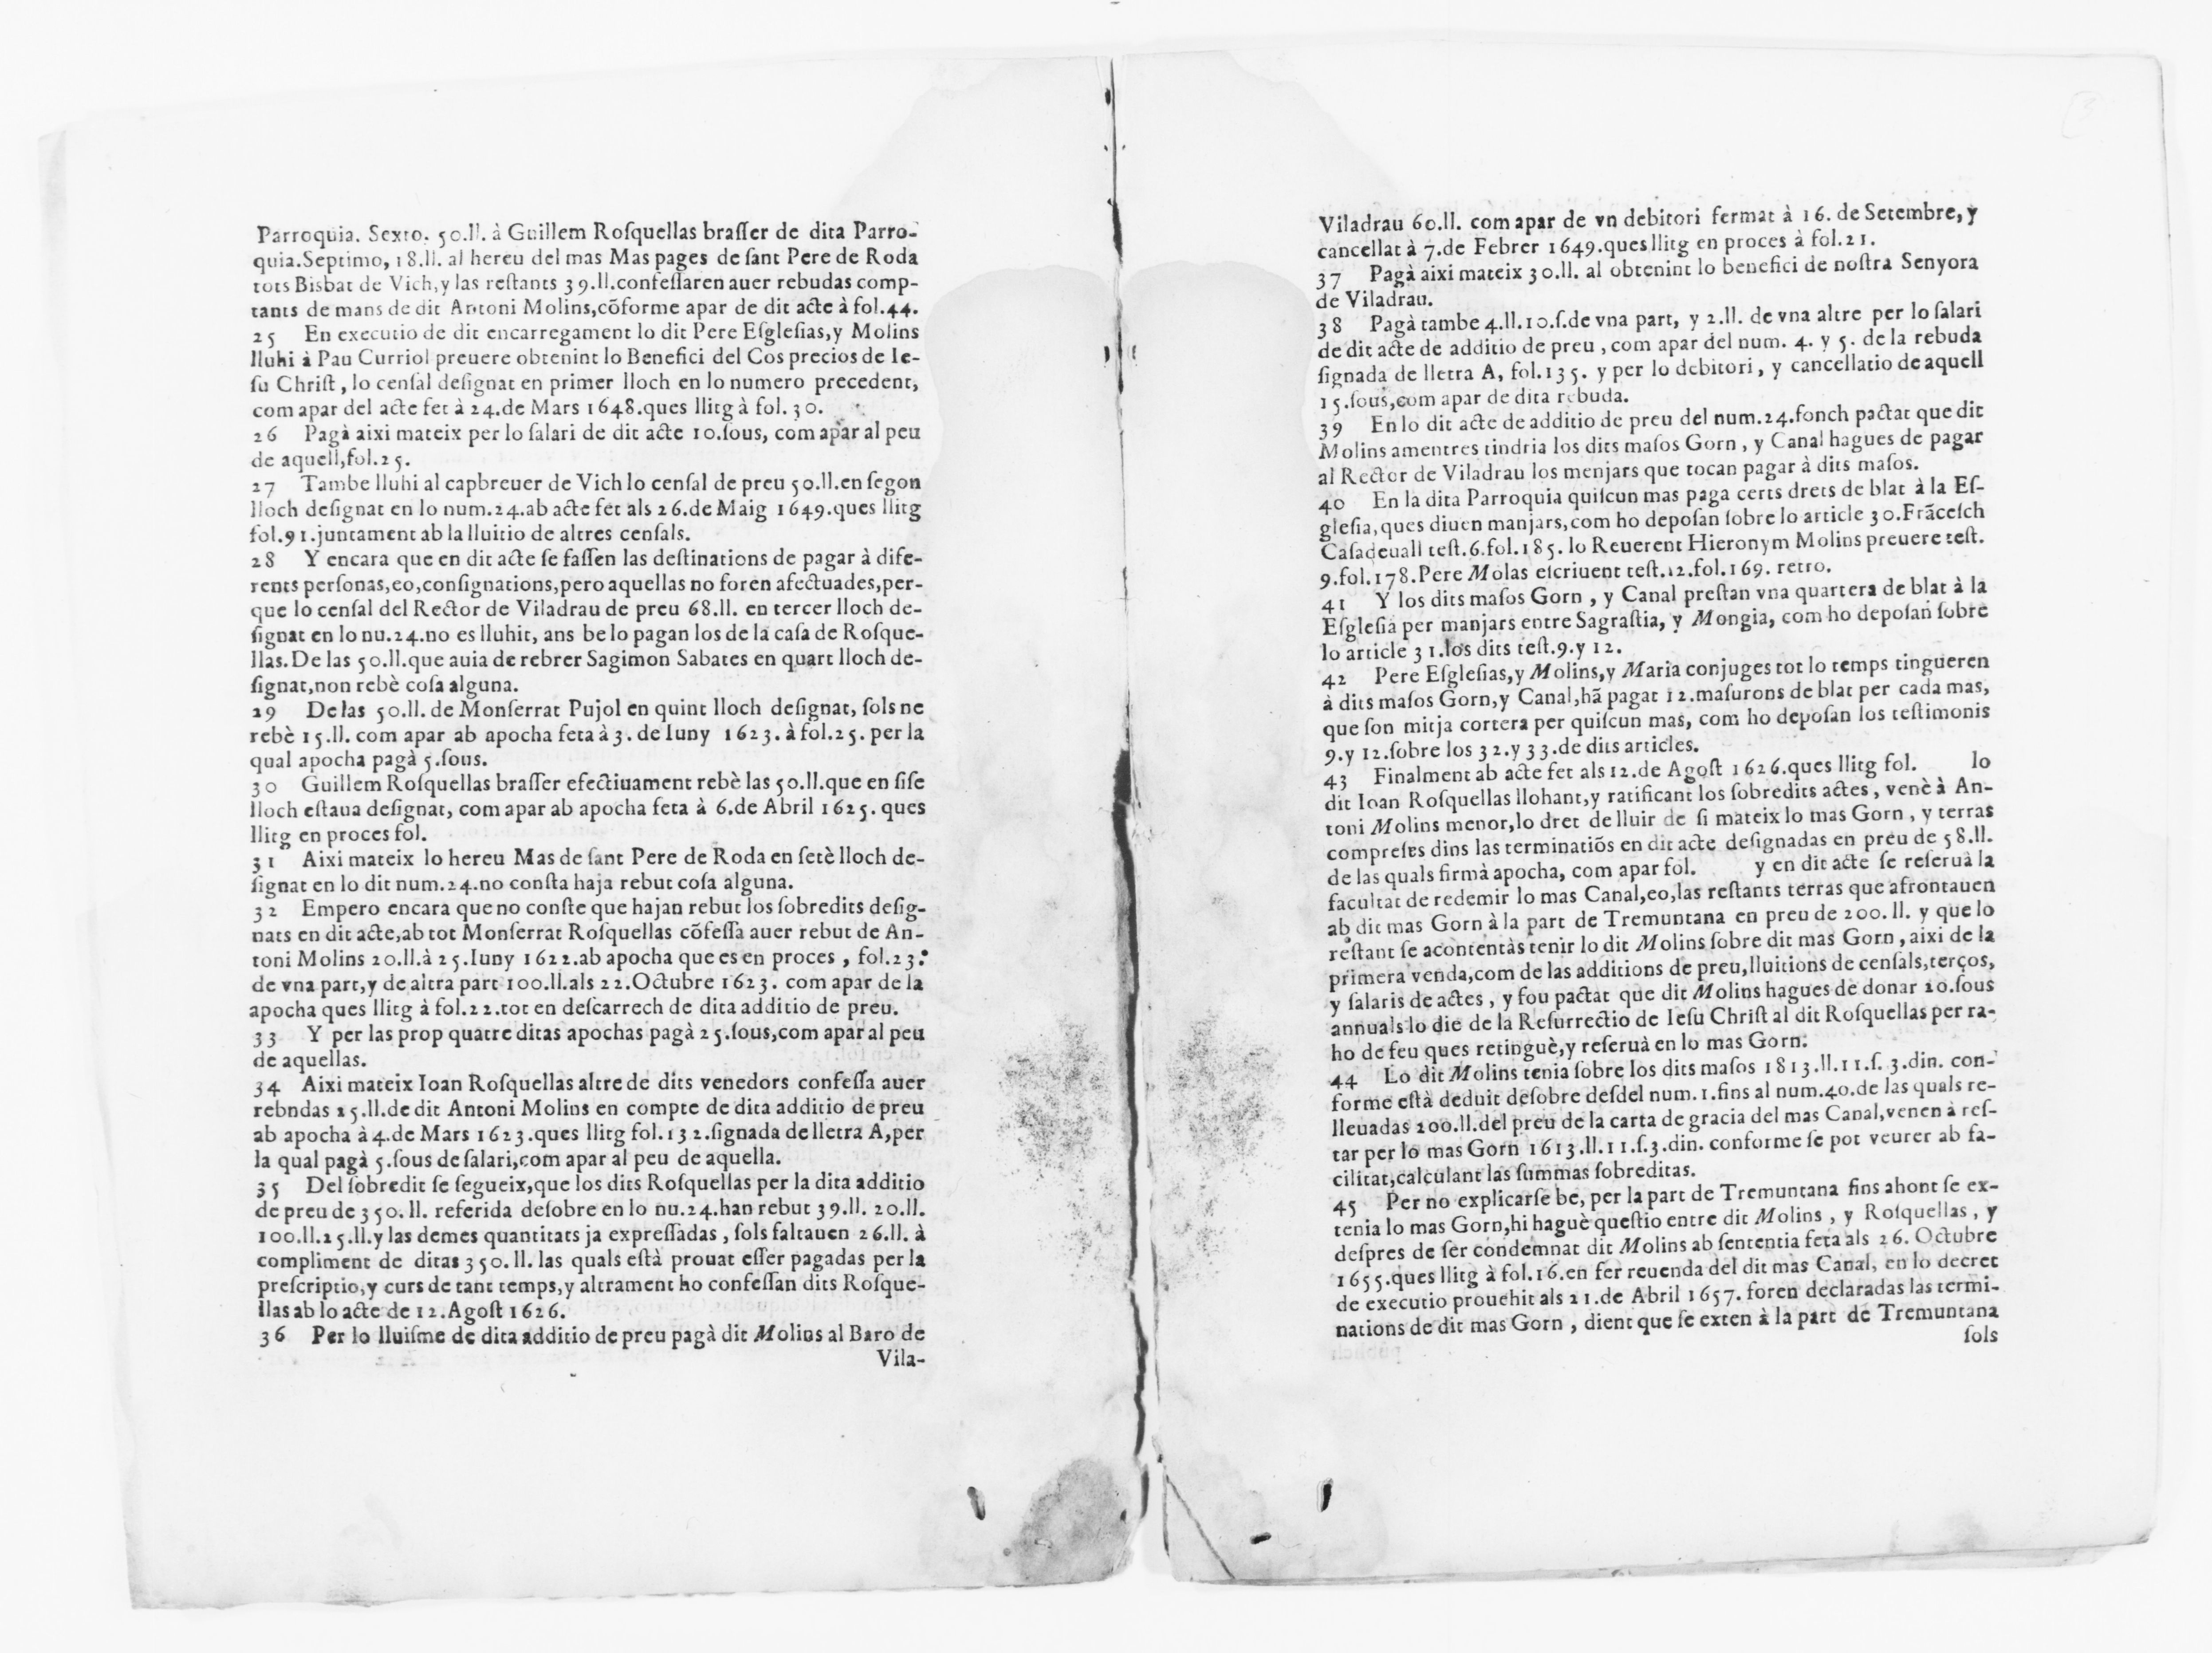 Parroquia. Sexto. 50.ll. à Guillem Roſquellas braſſer de dita Parro-
quia.Septimo, 18.ll. al hereu del mas Mas pages de ſant Pere de Roda
tots Bisbat de Vich,y las reſtants 39.ll.confeſſaren auer rebudas comp-
tants de mans de dit Antoni Molins,cõforme apar de dit acte à fol.44.
25 En executio de dit encarregament lo dit Pere Eſgleſias,y Molins
lluhi à Pau Curriol preuere obtenint lo Benefici del Cos precios de Ie-
ſu Chriſt, lo cenſal deſignat en primer lloch en lo numero precedent,
com apar del acte fet à 24.de Mars 1648.ques llitg à fol. 30.
26 Pagà aixi mateix per lo ſalari de dit acte 10.ſous, com apar al peu
de aquell,fol.25.
27 Tambe lluhi al capbreuer de Vich lo cenſal de preu 50.ll.en ſegon
lloch deſignat en lo num.24.ab acte fet als 26.de Maig 1649.ques llitg
fol.91.juntament ab la lluitio de altres cenſals.
28 Y encara que en dit acte ſe faſſen las deſtinations de pagar à dife-
rents perſonas,eo,conſignations,pero aquellas no foren afectuades,per-
que lo cenſal del Rector de Viladrau de preu 68.ll. en tercer lloch de-
ſignat en lo nu.24.no es lluhit, ans be lo pagan los de la caſa de Roſque-
llas.De las 50.ll.que auia de rebrer Sagimon Sabates en quart lloch de-
ſignat,non rebè coſa alguna.
29 De las 50.ll. de Monſerrat Pujol en quint lloch deſignat, ſols ne
rebè 15.ll. com apar ab apocha feta à 3. de Iuny 1623. à fol.25. per la
qual apocha pagà 5.ſous.
30 Guillem Roſquellas braſſer efectiuament rebè las 50.ll.que en ſiſe
lloch eſtaua deſignat, com apar ab apocha feta à 6.de Abril 1625. ques
llitg en proces fol.
31 Aixi mateix lo hereu Mas de ſant Pere de Roda en ſetè lloch de-
ſignat en lo dit num.24.no conſta haja rebut coſa alguna.
32 Empero encara que no conſte que hajan rebut los ſobredits deſig-
nats en dit acte,ab tot Monſerrat Roſquellas cõfeſſa auer rebut de An-
toni Molins 20.ll.à 25.Iuny 1622.ab apocha que es en proces, fol.23.
de vna part,y de altra part 100.ll.als 22.Octubre 1623. com apar de la
apocha ques llitg à fol.22.tot en deſcarrech de dita additio de preu.
33 Y per las prop quatre ditas apochas pagà 25.ſous,com apar al peu
de aquellas.
34 Aixi mateix Ioan Roſquellas altre de dits venedors confeſſa auer
rebndas 25.ll.de dit Antoni Molins en compte de dita additio de preu
ab apocha à 4.de Mars 1623.ques llitg fol.132.ſignada de lletra A,per
la qual pagà 5.ſous de ſalari,com apar al peu de aquella.
35 Del ſobredit ſe ſegueix,que los dits Roſquellas per la dita additio
de preu de 350.ll. referida deſobre en lo nu.24.han rebut 39.ll. 20.ll.
100.ll.25.ll.y las demes quantitats ja expreſſadas, ſols faltauen 26.ll. à
compliment de ditas 350.ll. las quals eſtà prouat eſſer pagadas per la
preſcriptio,y curs de tant temps,y altrament ho confeſſan dits Roſque-
llas ab lo acte de 12.Agoſt 1626.
36 Per lo lluiſme de dita additio de preu pagà dit Molins al Baro de
Vila-
Viladrau 60.ll. com apar de vn debitori fermat à 16. de Setembre, y
cancellat à 7.de Febrer 1649.ques llitg en proces à fol.21.
37 Pagà aixi mateix 30.ll. al obtenint lo benefici de noſtra Senyora
de Viladrau.
38 Pagà tambe 4.ll.10.ſ.de vna part, y 2.ll. de vna altre per lo ſalari
de dit acte de additio de preu, com apar del num. 4. y 5. de la rebuda
ſignada de lletra A, fol.135. y per lo debitori, y cancellatio de aquell
15.ſous,com apar de dita rebuda.
39 En lo dit acte de additio de preu del num.24.fonch pactat que dit
Molins amentres tindria los dits maſos Gorn, y Canal hagues de pagar
al Rector de Viladrau los menjars que tocan pagar à dits maſos.
40 En la dita Parroquia quiſcun mas paga certs drets de blat à la Eſ-
gleſia,ques diuen manjars,com ho depoſan ſobre lo article 30.Frãceſch
Caſadeuall teſt.6.fol.185. lo Reuerent Hieronym Molins preuere teſt.
9.fol.178.Pere Molas eſcriuent teſt.12.fol.169. retro.
41 Y los dits maſos Gorn, y Canal preſtan vna quartera de blat à la
Eſgleſia per manjars entre Sagraſtia, y Mongia, com ho depoſan ſobre
lo article 31.los dits teſt.9.y 12.
42 Pere Eſgleſias,y Molins,y Maria conjuges tot lo temps tingueren
à dits maſos Gorn,y Canal,hã pagat 12.maſurons de blat per cada mas,
que ſon mitja cortera per quiſcun mas, com ho depoſan los teſtimonis
9.y 12.ſobre los 32.y 33.de dits articles.
43 Finalment ab acte fet als 12.de Agoſt 1626.ques llitg fol. lo
dit Ioan Roſquellas llohant,y ratificant los ſobredits actes, venè à An-
toni Molins menor,lo dret de lluir de ſi mateix lo mas Gorn, y terras
compreſes dins las terminatiõs en dit acte deſignadas en preu de 58.ll.
de las quals firmà apocha, com apar fol. y en dit acte ſe reſeruà la
facultat de redemir lo mas Canal,eo,las reſtants terras que afrontauen
ab dit mas Gorn à la part de Tremuntana en preu de 200. ll. y que lo
reſtant ſe acontentàs tenir lo dit Molins ſobre dit mas Gorn, aixi de la
primera venda,com de las additions de preu,lluitions de cenſals,terços,
y ſalaris de actes, y fou pactat que dit Molins hagues de donar 20.ſous
annuals lo die de la Reſurrectio de Ieſu Chriſt al dit Roſquellas per ra-
ho de feu ques retinguè,y reſeruà en lo mas Gorn:
44 Lo dit Molins tenia ſobre los dits maſos 1813.ll.11.ſ. 3.din. con-
forme eſtà deduit deſobre deſdel num.1.fins al num.40.de las quals re-
lleuadas 200.ll.del preu de la carta de gracia del mas Canal,venen à reſ-
tar per lo mas Gorn 1613.ll.11.ſ.3.din. conforme ſe pot veurer ab fa-
cilitat,calculant las ſummas ſobreditas.
45 Per no explicarſe be, per la part de Tremuntana fins ahont ſe ex-
tenia lo mas Gorn,hi haguè queſtio entre dit Molins, y Roſquellas, y
deſpres de ſer condemnat dit Molins ab ſententia feta als 26. Octubre
1655.ques llitg à fol.16.en fer reuenda del dit mas Canal, en lo decret
de executio prouehit als 21.de Abril 1657. foren declaradas las termi-
nations de dit mas Gorn, dient que ſe exten à la part de Tremuntana
ſols